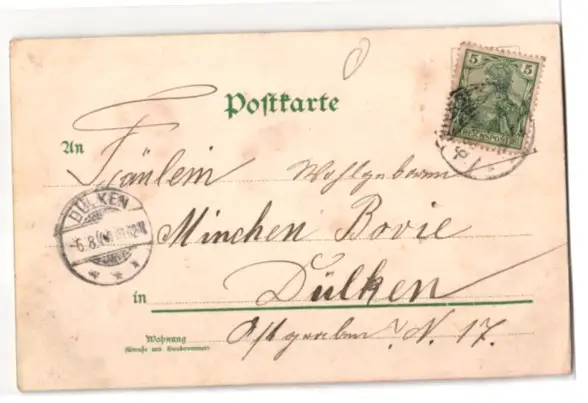 Postkarte
5 5
REICHSPOST
An Fräulein Wohlgeboren
DÜLKEN
6.8.
Minchen Bovie
in Dülken
Wohnung
(Straße und Hausnummer)
Ostgraben N. 17.